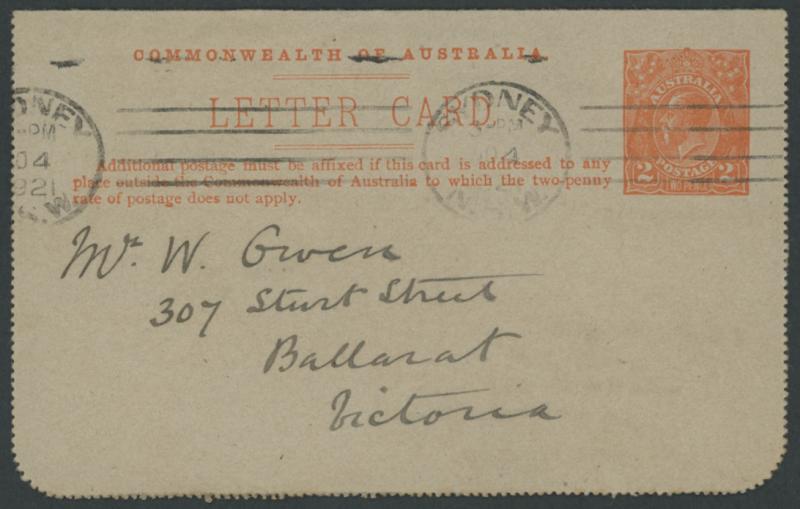 COMMONWEALTH OF AUSTRALIA
LETTER CARD
Additional postage must be affixed if this card is addressed to any
place outside the Commonwealth of Australia to which the two-penny
rate of postage does not apply.
AUSTRALIA
POSTAGE
2 2
TWO PENCE
SYDNEY
PM
04
1921
N.S.W.
SYDNEY
PM
4
N.S.W.
Mr. W. Owen
307 Sturt Street
Ballarat
Victoria